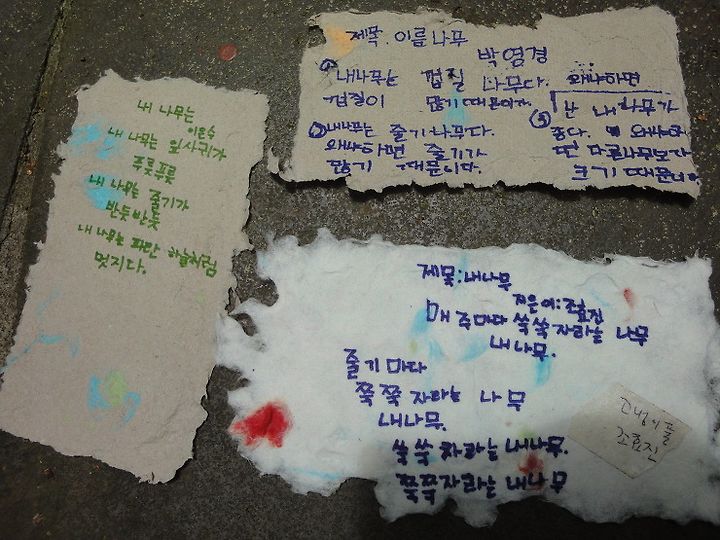 내 나무는
이은수
내 나무는 잎사귀가
푸릇푸릇
내 나무는 줄기가
반듯반듯
내 나무는 파란 하늘처럼
멋지다.
제목. 이름나무
박영경
① 내나무는 껍질 나무다. 왜냐하면
껍질이 많기 때문이다.
② 내나무는 줄기나무다.
왜냐하면 줄기가
많기 때문니다.
③ 난 내 나무가
좋다. 왜냐하
면 다른나무보다
크기 때문니다
제목:내나무
지은이:조효진
매 주마다 쑥쑥자라는 나무
내나무.
줄기마다
쭉쭉 자라는 나무
내나무.
쑥쑥 자라는 내나무.
쭉쭉자라는 내나무
조효진